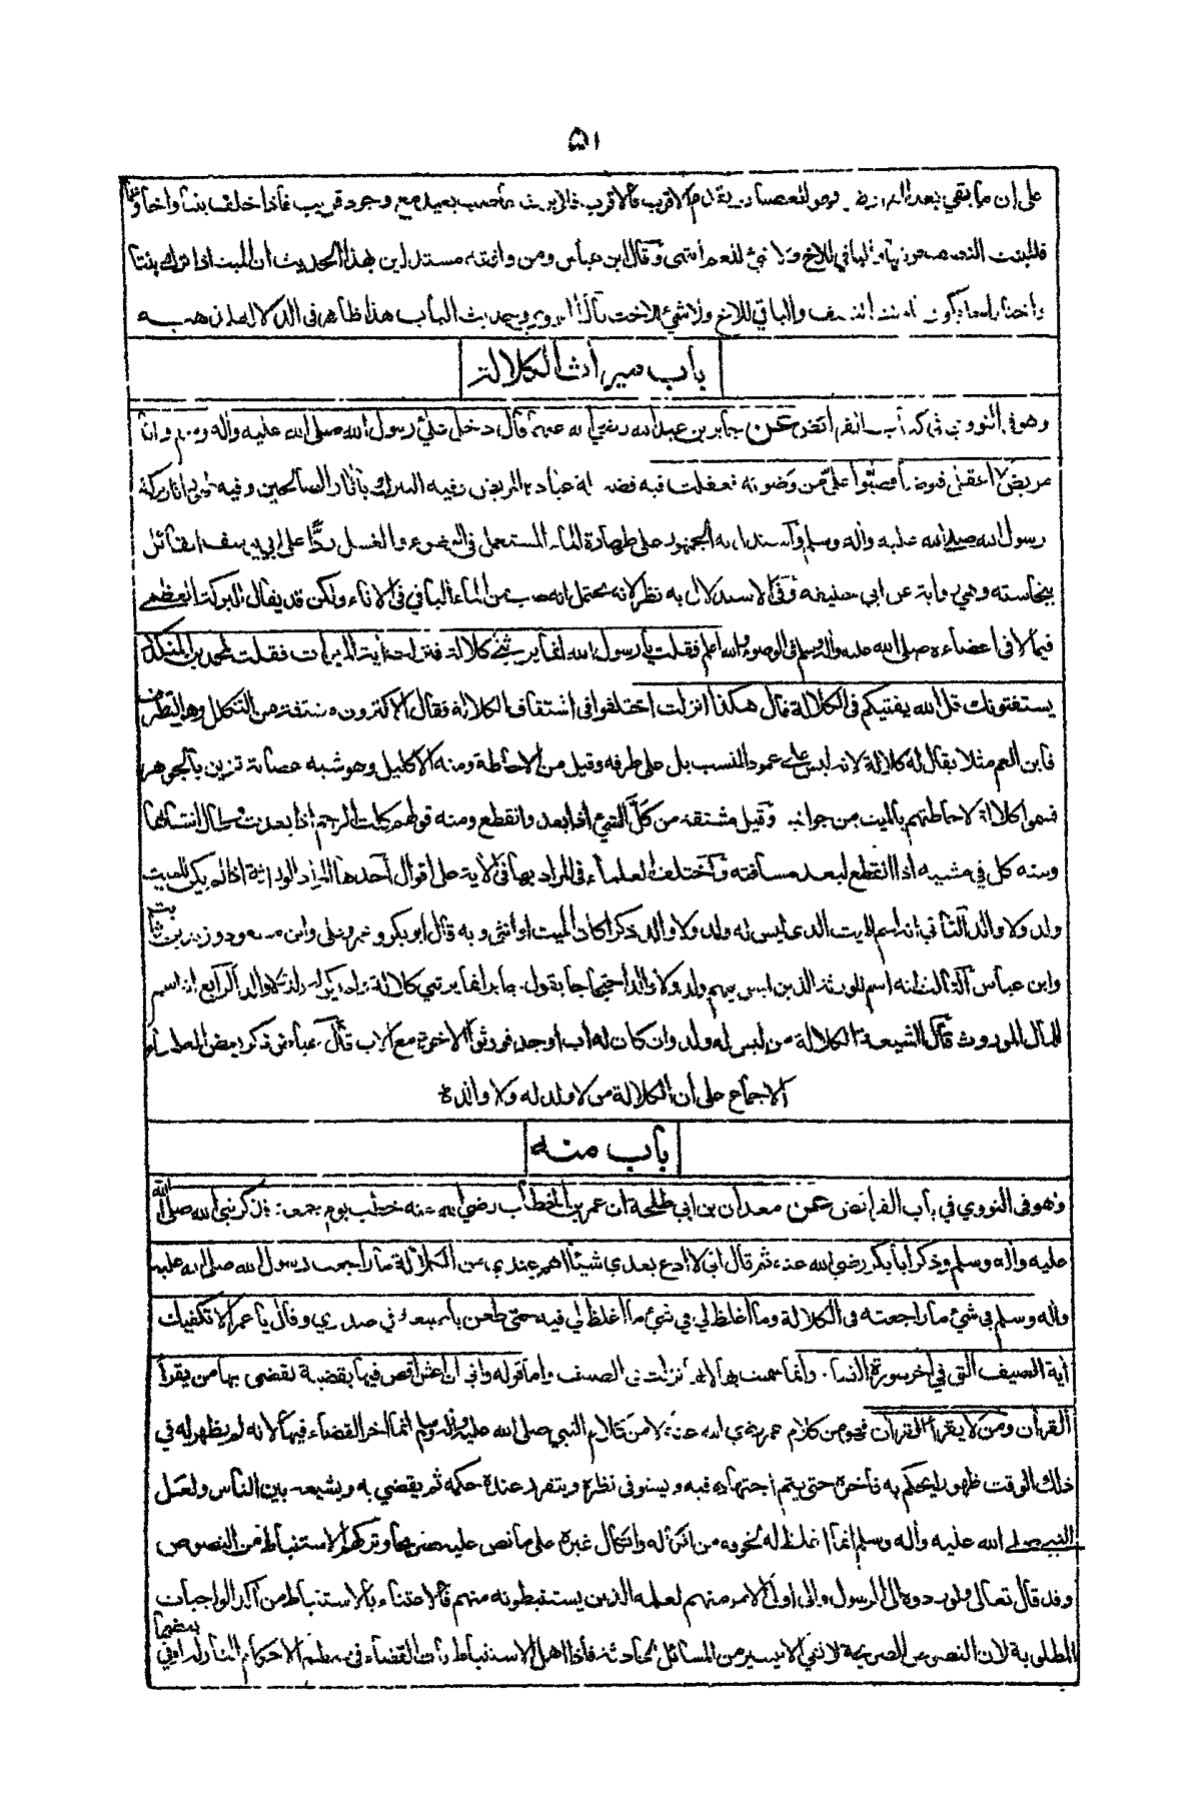 ٥١
على ان ما بقي بعد الفرائض فهو للعصبات يقدم الاقرب فالاقرب فلا يرث عاصب بعيد مع وجود قريب فاذا خلف بنتا واخا وعما
فللبنت النصف فرضا والباقي للاخ ولا شيء للعم انتهى وقال ابن عباس ومن وافقه مستدلين بهذا الحديث ان الميت اذا ترك بنتا
واختا للبنت النصف والباقي للاخ ولا شيء للاخت قال النووي وحديث الباب هذا ظاهر في الدلالة لمذهبه
باب ميراث الكلالة
وهو في النووي في كتاب الفرائض عن جابر بن عبد الله رضي الله عنهم قال دخل علي رسول الله صلى الله عليه واله وسلم وانا
مريض لا اعقل فتوضأ فصبوا علي من وضوئه فعقلت فيه فضيلة عيادة المريض وفيه التبرك بآثار الصالحين وفيه ظهور اثار بركة
رسول الله صلى الله عليه واله وسلم واستدل به الجمهور على طهارة الماء المستعمل في الوضوء والغسل ردا على ابي يوسف القائل
بنجاسته وهي رواية عن ابي حنيفة وفي الاستدلال به نظر لانه يحتمل انه صب من الماء الباقي في الاناء ولكن قد يقال البركة العظمى
فيما لاقى اعضاءه صلى الله عليه واله وسلم في الوضوء والله اعلم فقلت يا رسول الله انما يرثني كلالة فنزلت اية الميراث فقلت لمحمد بن المنكدر
يستفتونك قل الله يفتيكم في الكلالة قال هكذا انزلت اختلفوا في اشتقاق الكلالة فقال الاكثرون مشتقة من التكلل وهو التطرف
فابن العم مثلا يقال له كلالة لانه ليس على عمود النسب بل على طرفه وقيل من الاحاطة ومنه الاكليل وهو شبه عصابة تزين بالجوهر
فسموا كلالة لاحاطتهم بالميت من جوانبه وقيل مشتقة من كل الشيء اذا بعد وانقطع ومنه قولهم كلت الرحم اذا بعدت وطال انتسابها
ومنه كل في مشيه اذا انقطع لبعد مسافته واختلف العلماء في المراد بها في الاية على اقوال احدها المراد الوراثة اذا لم يكن للميت
ولد ولا والد الثاني انه اسم للميت الذي ليس له ولد ولا والد ذكرا كان الميت او انثى وبه قال ابو بكر وعمر وعلي وابن مسعود وزيد بن ثابت
وابن عباس الثالث انه اسم للورثة الذين ليس فيهم ولد ولا والد احتجاجا بقول جابر انما يرثني كلالة ولم يكن له ولد ولا والد الرابع انه اسم
للمال الموروث قال الشيعة الكلالة من ليس له ولد وان كان له اب او جد فورثوا الاخوة مع الاب قال عياض ذكر بعض العلماء
الاجماع على ان الكلالة من لا ولد له ولا والد
باب منه
وهو في النووي في باب الفرائض عن معدان بن ابي طلحة ان عمر بن الخطاب رضي الله عنه خطب يوم جمعة فذكر نبي الله صلى الله
عليه واله وسلم وذكر ابا بكر رضي الله عنه ثم قال اني لا ادع بعدي شيئا اهم عندي من الكلالة ما راجعت رسول الله صلى الله عليه
واله وسلم في شيء ما راجعته في الكلالة وما اغلظ لي في شيء ما اغلظ لي فيه حتى طعن باصبعه في صدري وقال يا عمر الا تكفيك
اية الصيف التي في اخر سورة النساء وانما سميت بها لانها نزلت في الصيف واما قوله واني ان اعش اقض فيها بقضية يقضي بها من يقرأ
القرآن ومن لا يقرأ القرآن فهو من كلام عمر رضي الله عنه لا من كلام النبي صلى الله عليه واله وسلم انما اخر القضاء فيها لانه لم يظهر له في
ذلك الوقت ظهورا يحكم به فاخره حتى يتم اجتهاده فيه ويستوفي نظره ويتقرر عنده حكمه ثم يقضي به ويشيعه بين الناس ولعل
النبي صلى الله عليه واله وسلم انما اغلظ له لخوفه من اتكاله واتكال غيره على ما نص عليه صريحا وتركهم الاستنباط من النصوص
وقد قال تعالى ولو ردوه الى الرسول والى اولي الامر منهم لعلمه الذين يستنبطونه منهم فالاعتناء بالاستنباط من اكد الواجبات
المطلوبة لان النصوص الصريحة لا تفي الا بيسير من المسائل الحادثة فاذا اهمل الاستنباط فات القضاء في معظم الاحكام النازلة او في بعضها